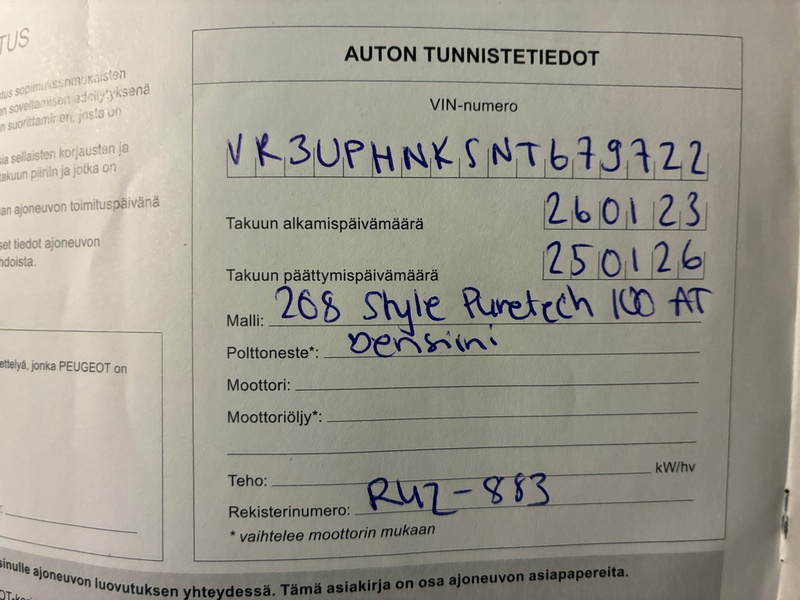 TUS
sopimuksenmukaisten
soveltamisen edellytyksenä
suorittaminen, josta on
sellaisten korjausten ja
takuun piiriin ja jotka on
ajoneuvon toimituspäivänä
set tiedot ajoneuvon
hdoista.
ettelyä, jonka PEUGEOT on
AUTON TUNNISTETIEDOT
VIN-numero
VR3UPHNKSNT679722
Takuun alkamispäivämäärä 260123
Takuun päättymispäivämäärä 250126
Malli: 208 Style Puretech 100 AT
Polttoneste*: Bensiini
Moottori:
Moottoriöljy*:
Teho: kW/hv
Rekisterinumero: RUZ-883
* vaihtelee moottorin mukaan
sinulle ajoneuvon luovutuksen yhteydessä. Tämä asiakirja on osa ajoneuvon asiapapereita.